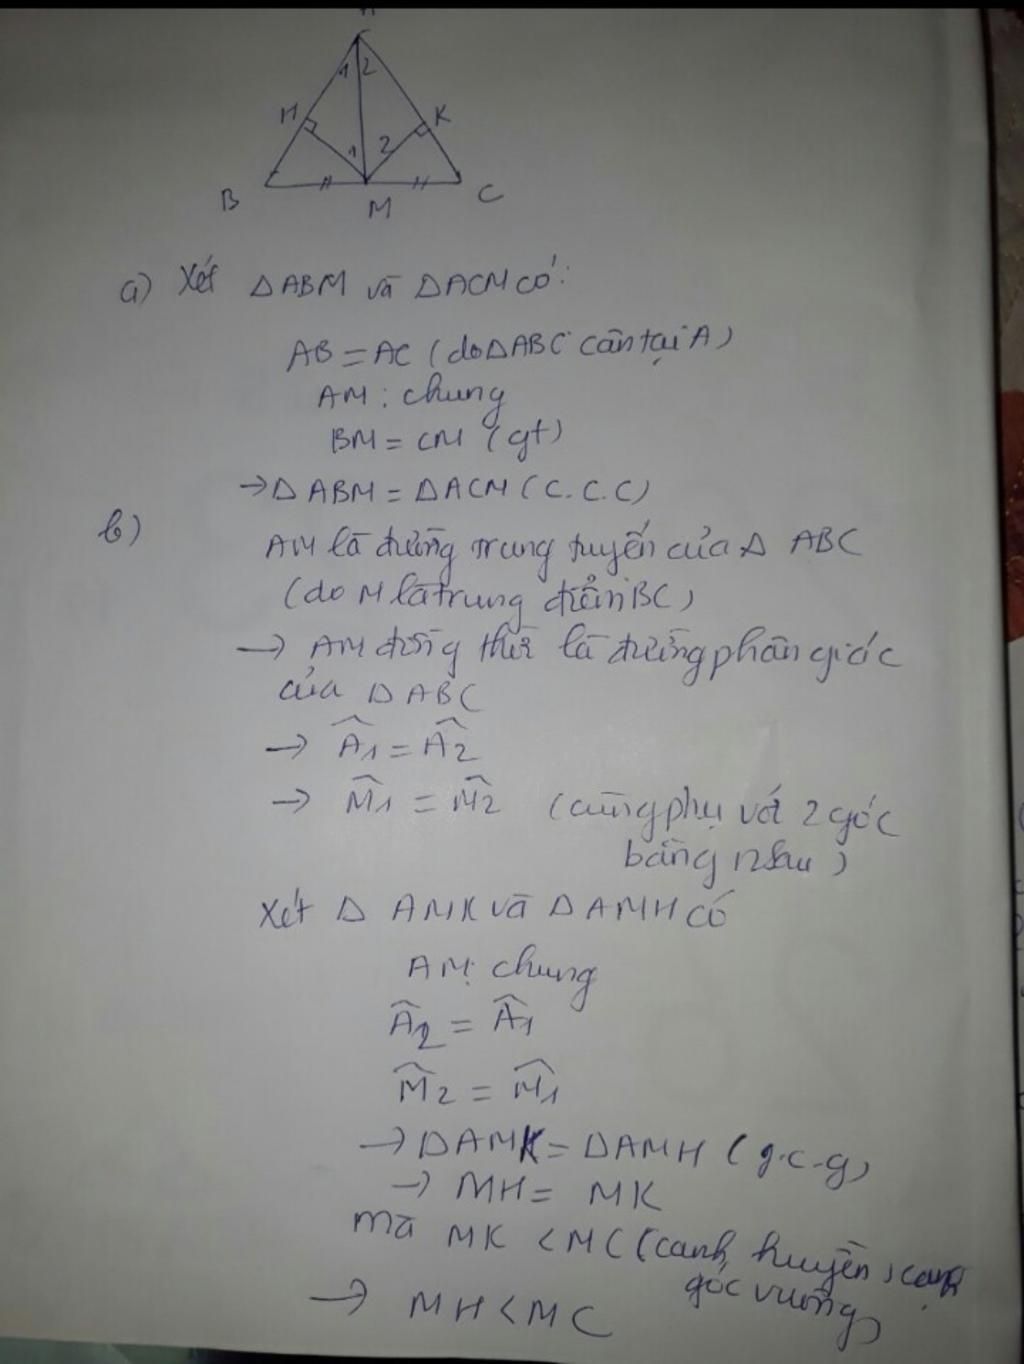 A
1 2
H
K
1 2
B
M
C
a) Xét ΔABM và ΔACM có:
AB = AC (do ΔABC cân tại A)
AM: chung
BM = CM (gt)
→ ΔABM = ΔACM (C.C.C)
b)
AM là đường trung tuyến của Δ ABC
(do M là trung điểm BC)
→ AM đồng thời là đường phân giác
của ΔABC
→ Â1 = Â2
→ M̂1 = M̂2 (cùng phụ với 2 góc
bằng nhau)
Xét Δ AMK và ΔAMH có
AM: chung
Â2 = Â1
M̂2 = M̂1
→ ΔAMK = ΔAMH (g.c-g)
→ MH = MK
mà MK < MC (cạnh huyền > cạnh
góc vuông)
→ MH < MC